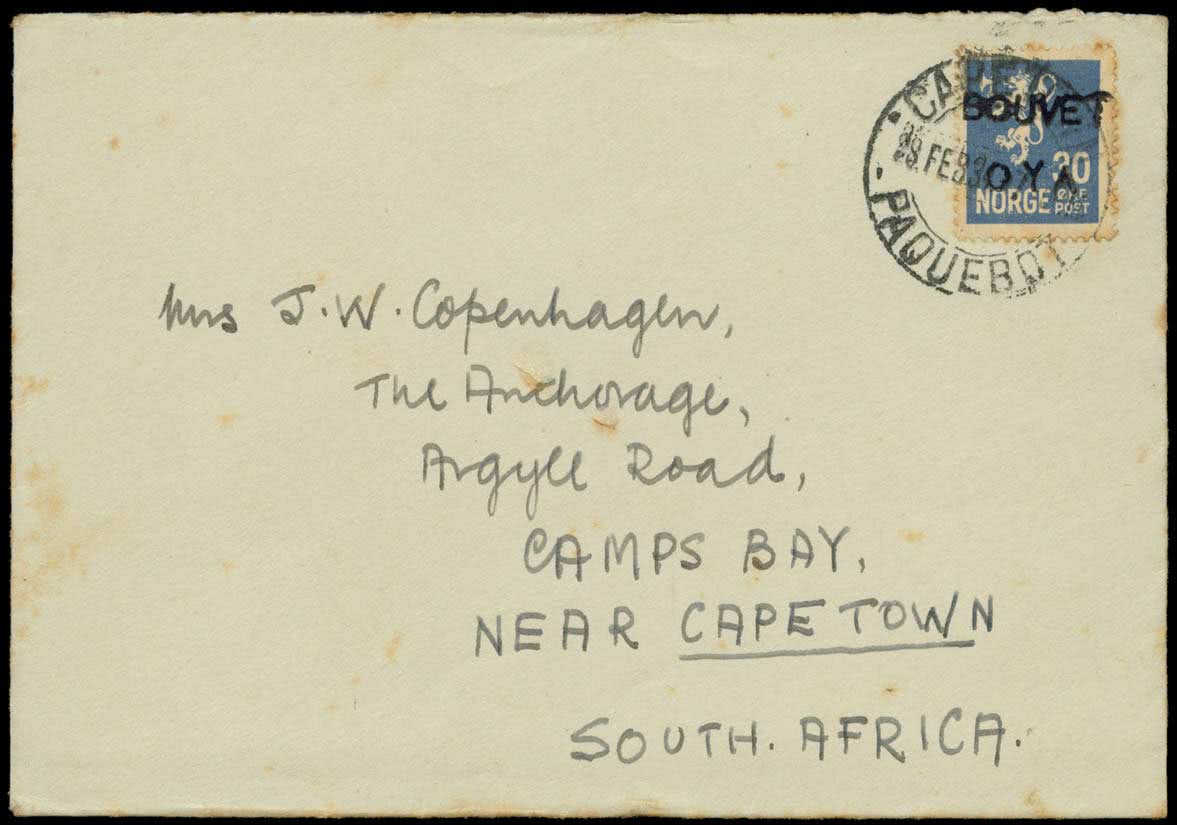 BOUVET
OYA
30
NORGE ØRE POST
28.FEB.34
PAQUEBOT
Mrs J.W. Copenhagen,
The Anchorage,
Argyll Road,
CAMPS BAY,
NEAR CAPE TOWN
SOUTH. AFRICA.